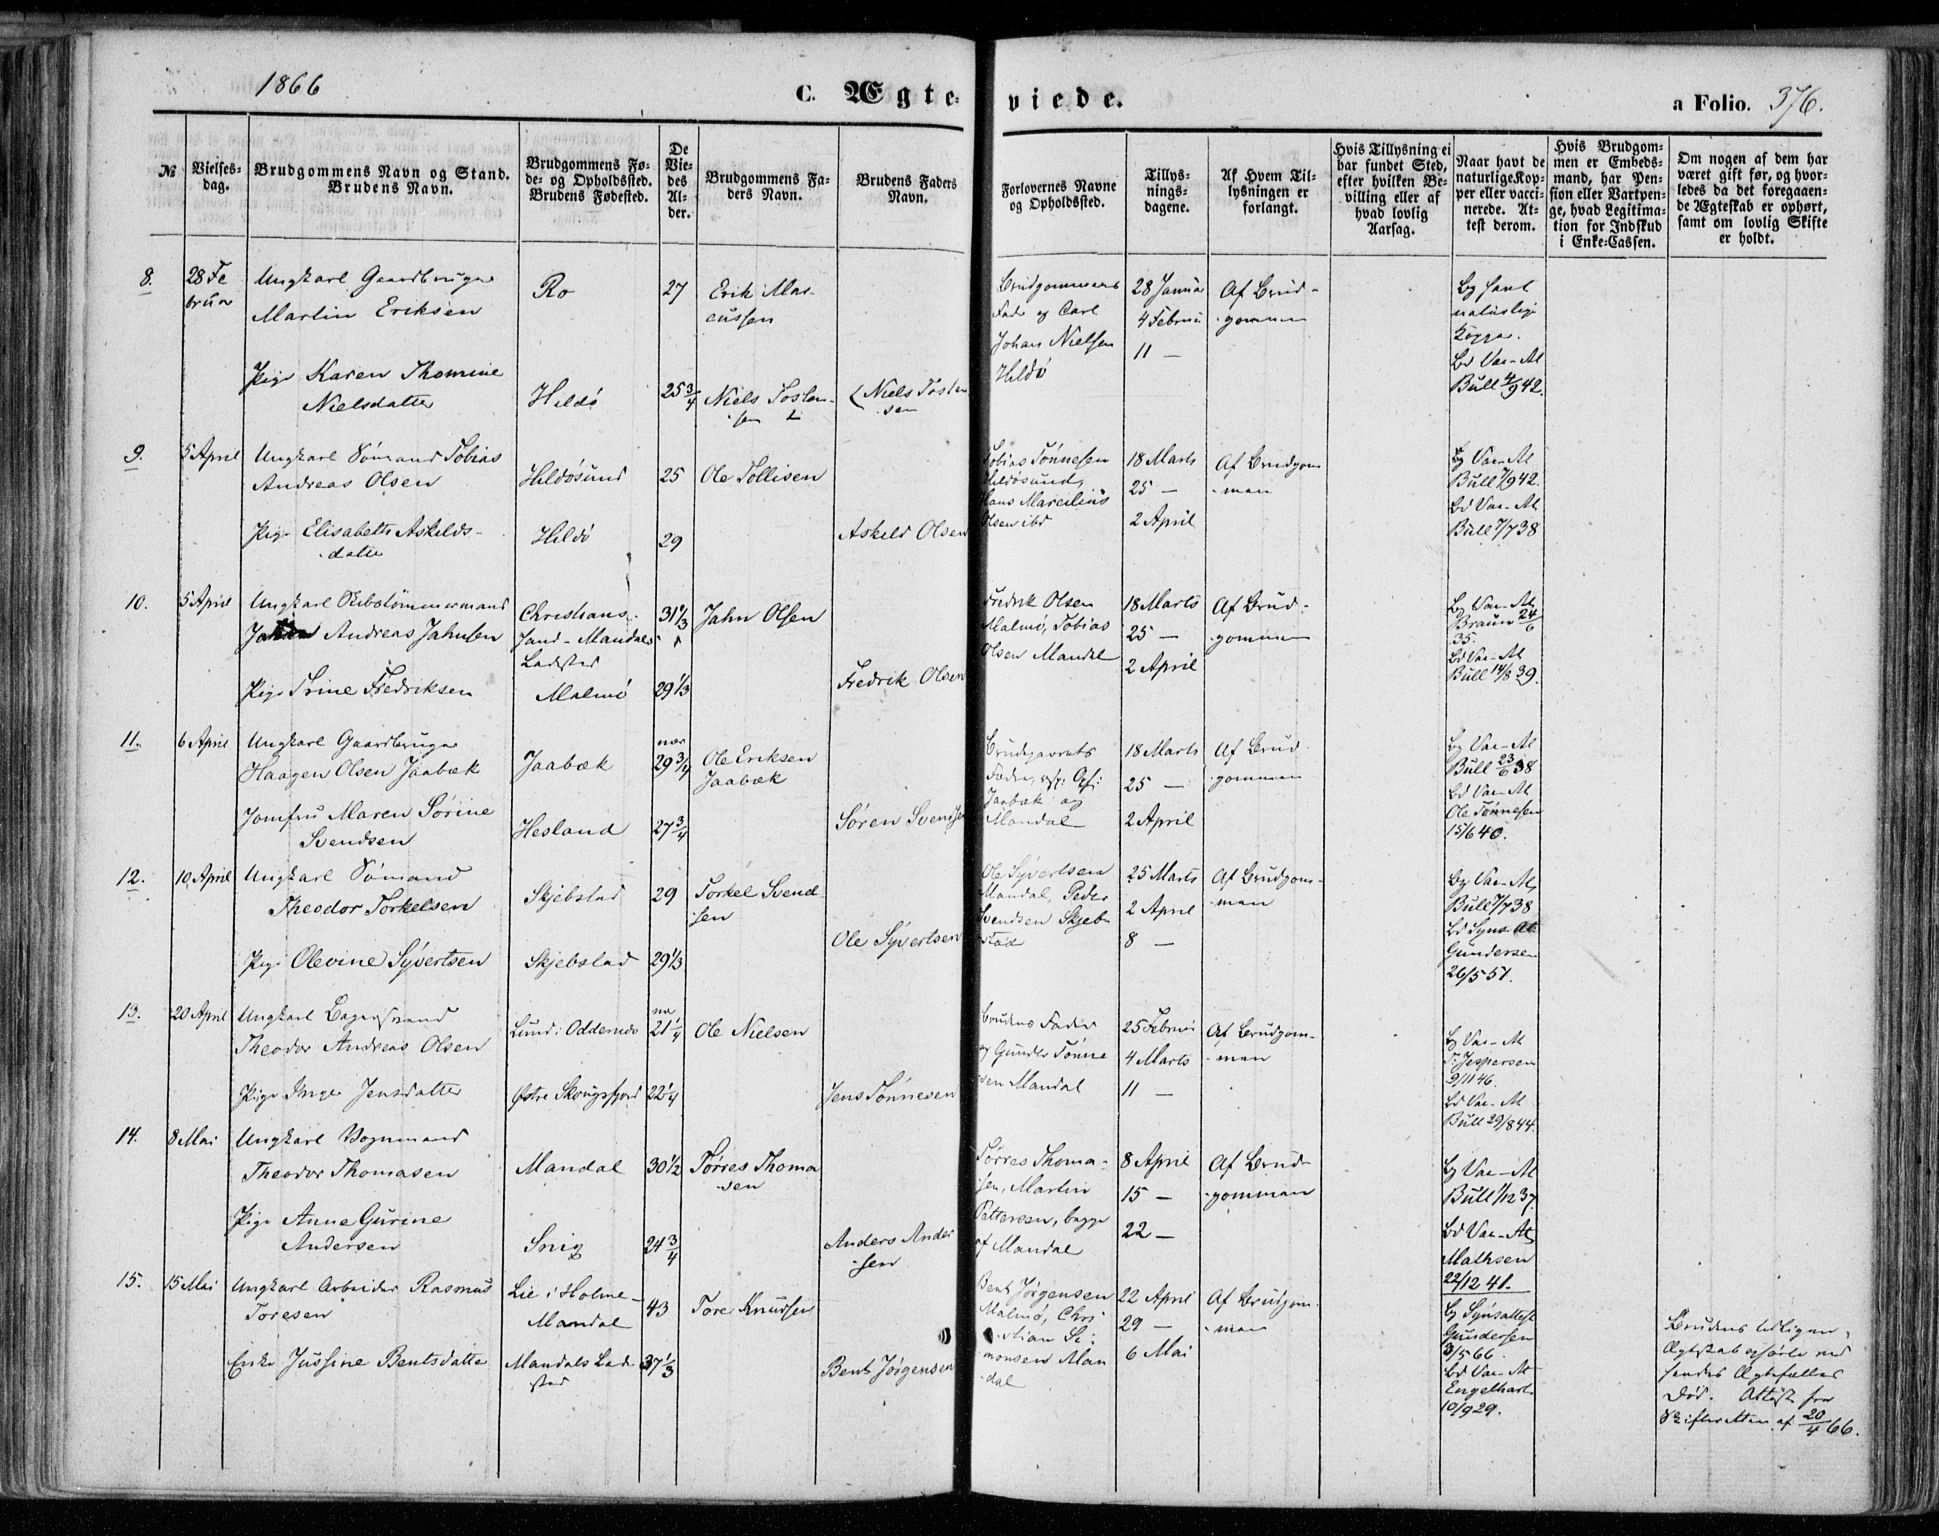 1866
C. Ægteviede.
a Folio. 376.
№
Vielsesdag.
Brudgommens Navn og Stand.
Brudens Navn.
Brudgommens Føde- og Opholdsted.
Brudens Fødested.
De Viedes Alder.
Brudgommens Faders Navn.
Brudens Faders Navn.
Forlovernes Navne og Opholdsted.
Tillysningsdagene.
Af Hvem Tillysningen er forlangt.
Hvis Tillysning ei har fundet Sted, efter hvilken Bevilling eller af hvad lovlig Aarsag.
Naar havt de naturlige Kopper eller vaccinerede. Attest derom.
Hvis Brudgommen er Embedsmand, har Pension eller Vartpenge, hvad Legitimation for Indskud i Enke-Cassen.
Om nogen af dem har været gift før, og hvorledes da det foregaaende Ægteskab er ophørt, samt om lovlig Skifte er holdt.
8. 28 Februar
Ungkarl Gaardbruger
Martin Eriksen
Ro
27
Erik Marcussen
Brudgommens
Fader og Carl
Johan Nielsen
Hildø
28 Januar
4 Februar
11 —
Af Brudgommen
Bg havt
naturlige
Kopper.
Bd Vac-At
Bull 4/9 42.
Pige Karen Thomine
Nielsdatter
Hildø
25 3/4
Niels Tostensen
Niels Tostensen
9. 5 April
Ungkarl Sømand Tobias
Andreas Olsen
Hildøsund
25
Ole Tollisen
Tobias Tønnesen
Hildøsund,
Hans Marcilius
Olsen ibd
18 Marts
25 —
2 April
Af Brudgommen
Bg Vac-At
Bull 7/9 42.
Bd Vac-At
Bull 7/7 38
Pige Elisabeth Askildsdatter
Hildø
29
Askild Olsen
10. 5 April
Ungkarl Skibstømmermand
Andreas Jahnsen
Christiansand - Mandals
Ladsted
31 1/3
Jahn Olsen
Fredrik Olsen
Malmø, Tobias
Olsen Mandal
18 Marts
25 —
2 April
Af Brudgommen
Bg Vac-At
Braun 24/6
35.
Bd Vac-At
Bull 14/8 39.
Pige Trine Fredriksen
Malmø
29 1/3
Fredrik Olsen
11. 6 April
Ungkarl Gaardbruger
Haagen Olsen Jaabæk
Jaabæk
nær
29 3/4
Ole Eriksen
Jaabæk
Fader,
Jaabæk og
Mandal
18 Marts
25 —
2 April
Af Brudgommen
Bg Vac-At
Bull 23/6 38
Bd Vac-At
Ole Tønnesen
15/6 40.
Jomfru Maren Sørine
Svendsen
Hesland
27 3/4
Søren Svendsen
12. 10 April
Ungkarl Sømand
Theodor Torkelsen
Skjebstad
29
Torkel Svendsen
Ole Syvertsen
Mandal, Peder
Svendsen Skjebstad
25 Marts
2 April
8 —
Af Brudgommen
Bg Vac-At
Bull 7/7 38
Bd Syns At
Gundersen
26/5 51.
Pige Olevine Syvertsen
Skjebstad
29 1/3
Ole Syvertsen
13. 20 April
Ungkarl Bagersvend
Theodor Andreas Olsen
Lund i Oddernes
21 1/4
Ole Nielsen
Brudens Fader
og Gunder Tønnesen Mandal
25 Februar
4 Marts
11 —
Af Brudgommen
Bg Vac-At
Jespersen
9/11 46.
Bd Vac-At
Bull 29/8 44.
Pige Inge Jensdatter
Østre Skougsfjord
22 1/4
Jens Tønnesen
14. 8 Mai
Ungkarl Vognmand
Theodor Thomasen
Mandal
30 1/2
Tørres Thomasen
Tørres Thomasen, Martin
Pettersen, begge
af Mandal
8 April
15 —
22 —
Af Brudgommen
Bg Vac-At
Bull 1/12 37.
Bd Vac-At
Mathsen
22/12 41.
Pige Anne Gurine
Andersen
Snig
24 3/4
Anders Andersen
15. 15 Mai
Ungkarl Arbeider Rasmus
Toresen
Lie i Holme -
Mandal
43
Tore Knudsen
Bent Jørgensen
Malmø, Christian Simonsen Mandal
22 April
29 —
6 Mai
Af Brudgommen
Bg Synsattest
Gundersen
3/5 66.
Bd Vac-At
Engelhart
10/9 29.
Enke Jussine Bentsdatter
Mandals Ladsted
37 1/3
Bent Jørgensen
Brudens tidligere
Ægteskab ophørte ved
hendes Ægtefælles
Død. Attest fra
Skifteretten af 20/4 66.